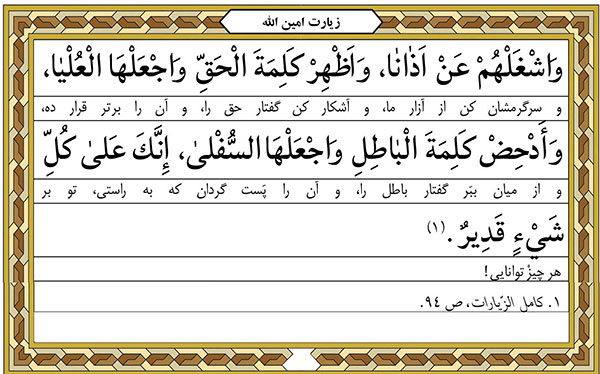 زیارت امین الله
وَاشْغَلْهُمْ عَنْ اَذٰانٰا، وَاَظْهِرْ كَلِمَةَ الْحَقِّ وَاجْعَلْهَا الْعُلْيٰا،
و سرگرمشان کن از آزار ما، و آشکار کن گفتار حق را، و آن را برتر قرار ده،
وَأَدْحِضْ كَلِمَةَ الْبٰاطِلِ وَاجْعَلْهَا السُّفْلىٰ، اِنَّكَ عَلىٰ كُلِّ
و از میان ببَر گفتار باطل را، و آن را پَست گردان که به راستی، تو بر
شَيْءٍ قَدِيرٌ .(١)
هر چیزْ توانایی!
۱. کامل الزّیارات، ص ۹۴.